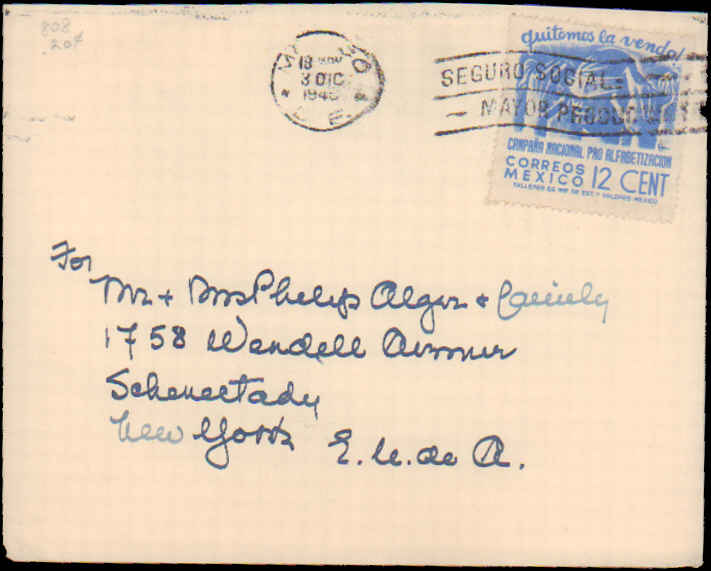 808
20¢
quitemos la venda!
18 NOV
3 DIC
SEGURO SOCIAL
MAYOR PRODUC
CAMPAÑA NACIONAL PRO ALFABETIZACION
CORREOS
MEXICO 12 CENT
TALLERES DE IMP. DE EST. Y VALORES-MEXICO
For
Mr + Mrs Philip Alger + Family
1758 Wendell Avenue
Schenectady
New York E. U. de A.